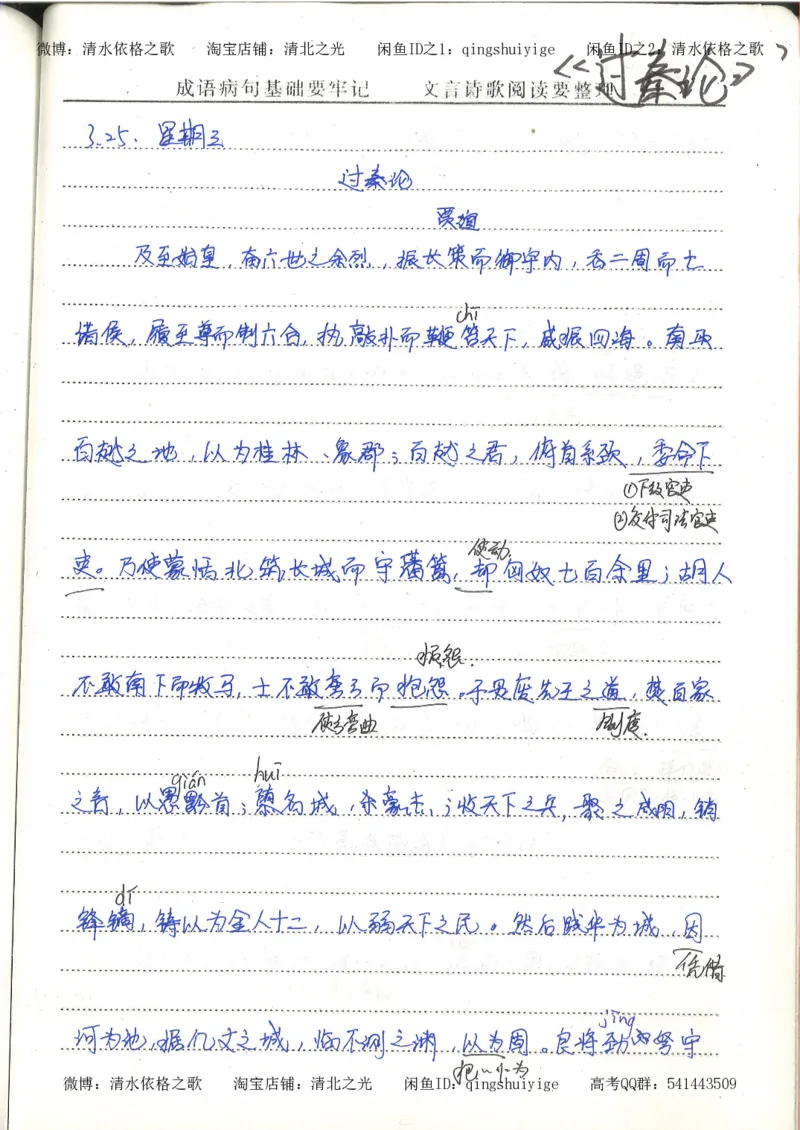 微博：清水依格之歌 淘宝店铺：清北之光 闲鱼ID之1：qingshuiyige 闲鱼ID之2：清水依格之歌
《过秦论》
成语病句基础要牢记 文言诗歌阅读要整理
3.25. 星期三
过秦论
贾谊
及至始皇，奋六世之余烈，振长策而御宇内，吞二周而亡
chī
诸侯，履至尊而制六合，执敲扑而鞭笞天下，威振四海。南取
百越之地，以为桂林、象郡；百越之君，俯首系颈，委命下
①下级官吏
②交付司法官吏
使动
吏。乃使蒙恬北筑长城而守藩篱，却匈奴七百余里；胡人
报怨.
不敢南下而牧马，士不敢弯弓而抱怨。于是废先王之道，焚百家
使弓弯曲 制度.
qián huī
之言，以愚黔首；隳名城，杀豪杰；收天下之兵，聚之咸阳，销
dí
锋镝，铸以为金人十二，以弱天下之民。然后践华为城，因
凭借
jìng
河为池，据亿丈之城，临不测之渊，以为固。良将劲弩守
把…作为
微博：清水依格之歌 淘宝店铺：清北之光 闲鱼ID：qingshuiyige 高考QQ群：541443509